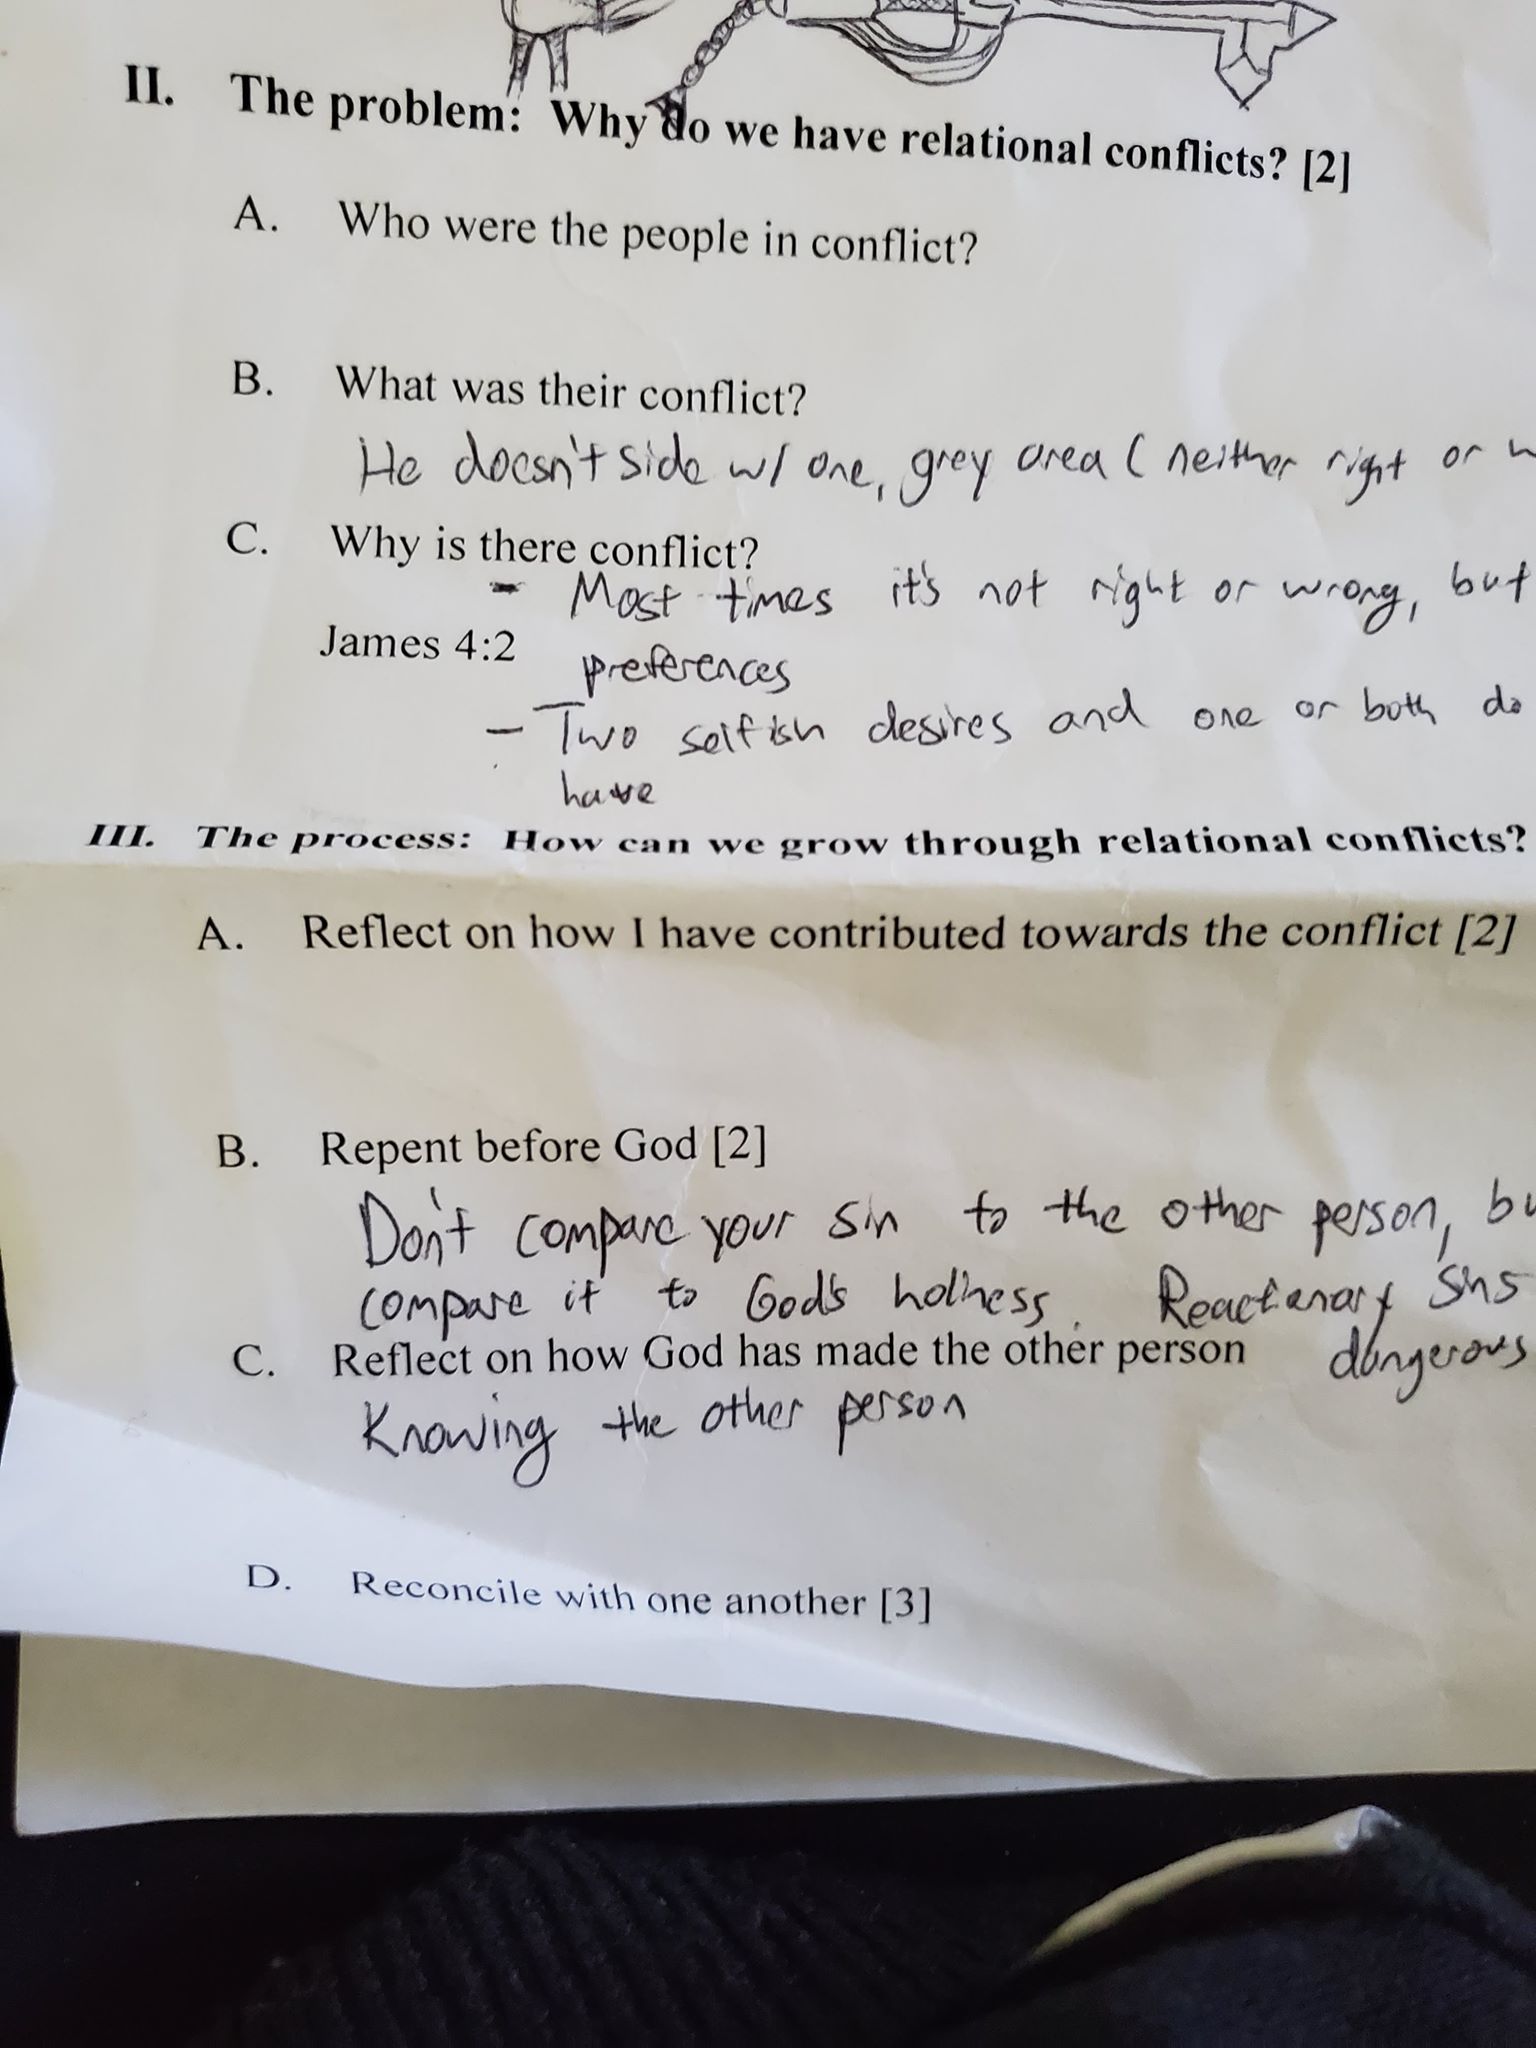 II. The problem: Why do we have relational conflicts? [2]
A. Who were the people in conflict?
B. What was their conflict?
He doesn't side w/ one, grey area (neither right or
C. Why is there conflict?
- Most times it's not right or wrong, but
James 4:2 preferences
- Two selfish desires and one or both do
have
III. The process: How can we grow through relational conflicts?
A. Reflect on how I have contributed towards the conflict [2]
B. Repent before God [2]
Don't compare your sin to the other person, bu
compare it to God's holiness. Reactionary sins
C. Reflect on how God has made the other person dangerous
Knowing the other person
D. Reconcile with one another [3]